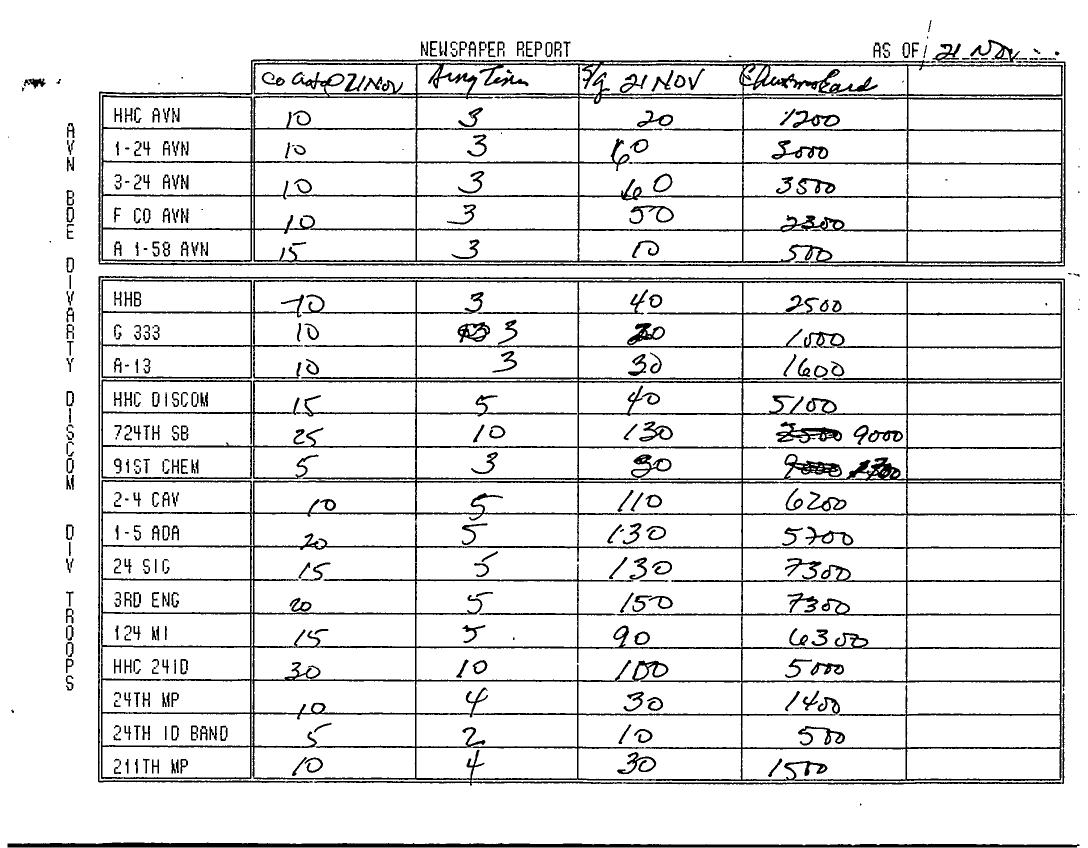 NEWSPAPER REPORT AS OF 21 NOV
21 NOV Army Times S/G 21 NOV Christmas Card
HHC AVN 10 3 20 1200
1-24 AVN 10 3 60 3000
3-24 AVN 10 3 60 3500
F CO AVN 10 3 50 2300
A 1-58 AVN 15 3 10 500
HHB 10 3 40 2500
G 333 10 3 1000
A-13 10 3 30 1600
HHC DISCOM 15 5 40 5100
724TH SB 25 10 130 2500 9000
91ST CHEM 5 3 30 9000
2-4 CAV 10 5 110 6200
1-5 ADA 20 5 130 5700
24 SIG 15 5 130 7300
3RD ENG 20 5 150 7300
124 MI 15 5 90 6300
HHC 24ID 30 10 100 5000
24TH MP 10 4 30 1400
24TH ID BAND 5 2 10 500
211TH MP 10 4 30 1500
AVN BDE DIVARTY DISCOM DIV TROOPS